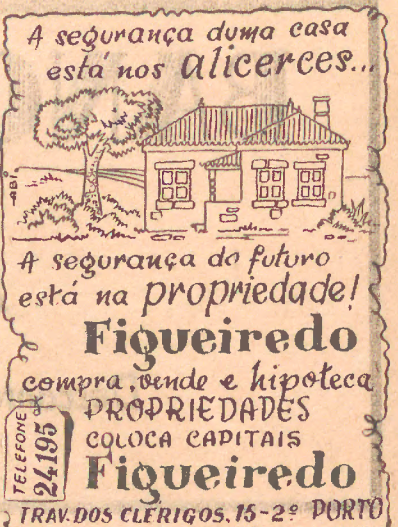 A segurança duma casa
está nos alicerces...
ABÍ
A segurança do futuro
está na propriedade!
Figueiredo
compra, vende e hipoteca
PROPRIEDADES
COLOCA CAPITAIS
TELEFONE
24195
Figueiredo
TRAV. DOS CLÉRIGOS, 15-2º PORTO